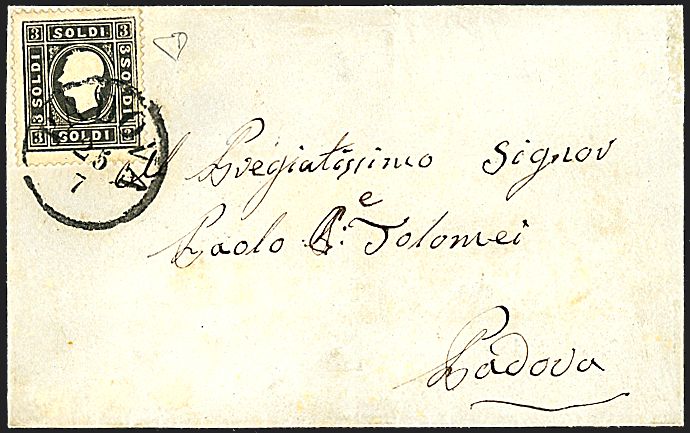 3 SOLDI 3
3 SOLDI
3 SOLDI
3 SOLDI 3
5
7
Al Pregiatissimo Signor
Paolo D.e Tolomei
Padova